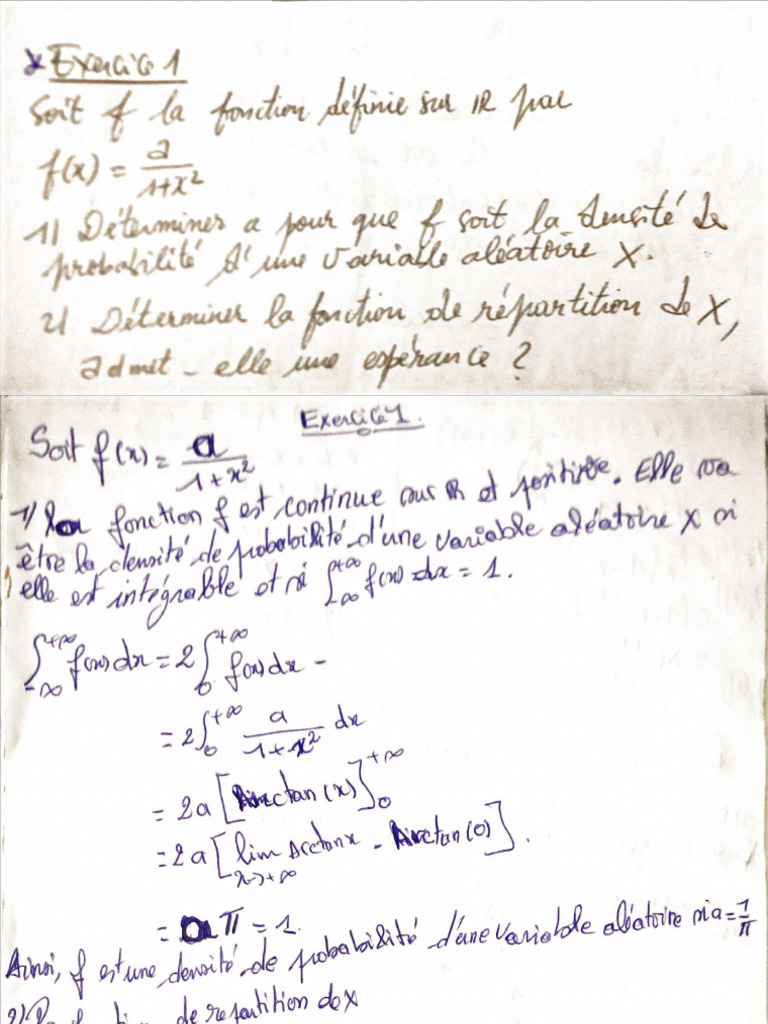 * Exercice 1
Soit f la fonction définie sur IR par
f(x) = a/(1+x²)
1) Déterminer a pour que f soit la densité de
probabilité d'une variable aléatoire X.
2) Déterminer la fonction de répartition de X,
admet-elle une espérance ?
Exercice 1.
Soit f(x) = a/(1+x²)
1) la fonction f est continue sur IR et positive. Elle va
être la densité de probabilité d'une variable aléatoire X si
elle est intégrable et si ∫_{-∞}^{+∞} f(x) dx = 1.
∫_{-∞}^{+∞} f(x) dx = 2 ∫_0^{+∞} f(x) dx -
= 2 ∫_0^{+∞} a/(1+x²) dx
= 2a [Arctan(x)]_0^{+∞}
= 2a [lim_{x→+∞} Arctan x - Arctan(0)].
= aπ = 1.
Ainsi, f est une densité de probabilité d'une variable aléatoire si a = 1/π
2) de repartition de X